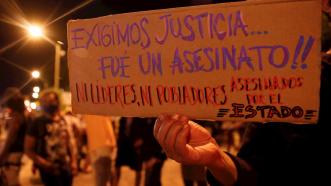 EXIGIMOS JUSTICIA...
FUÉ UN ASESINATO!!
NI LIDERES, NI POBLADORES ASESINADOS
POR EL
ESTADO